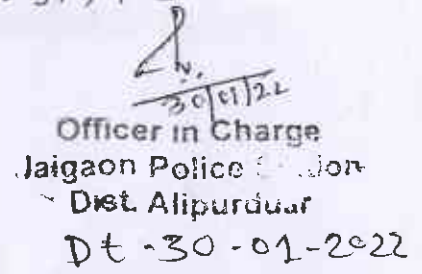 30/01/22
Officer in Charge
Jaigaon Police
Dist. Alipurduar
Dt - 30 - 01 - 2022